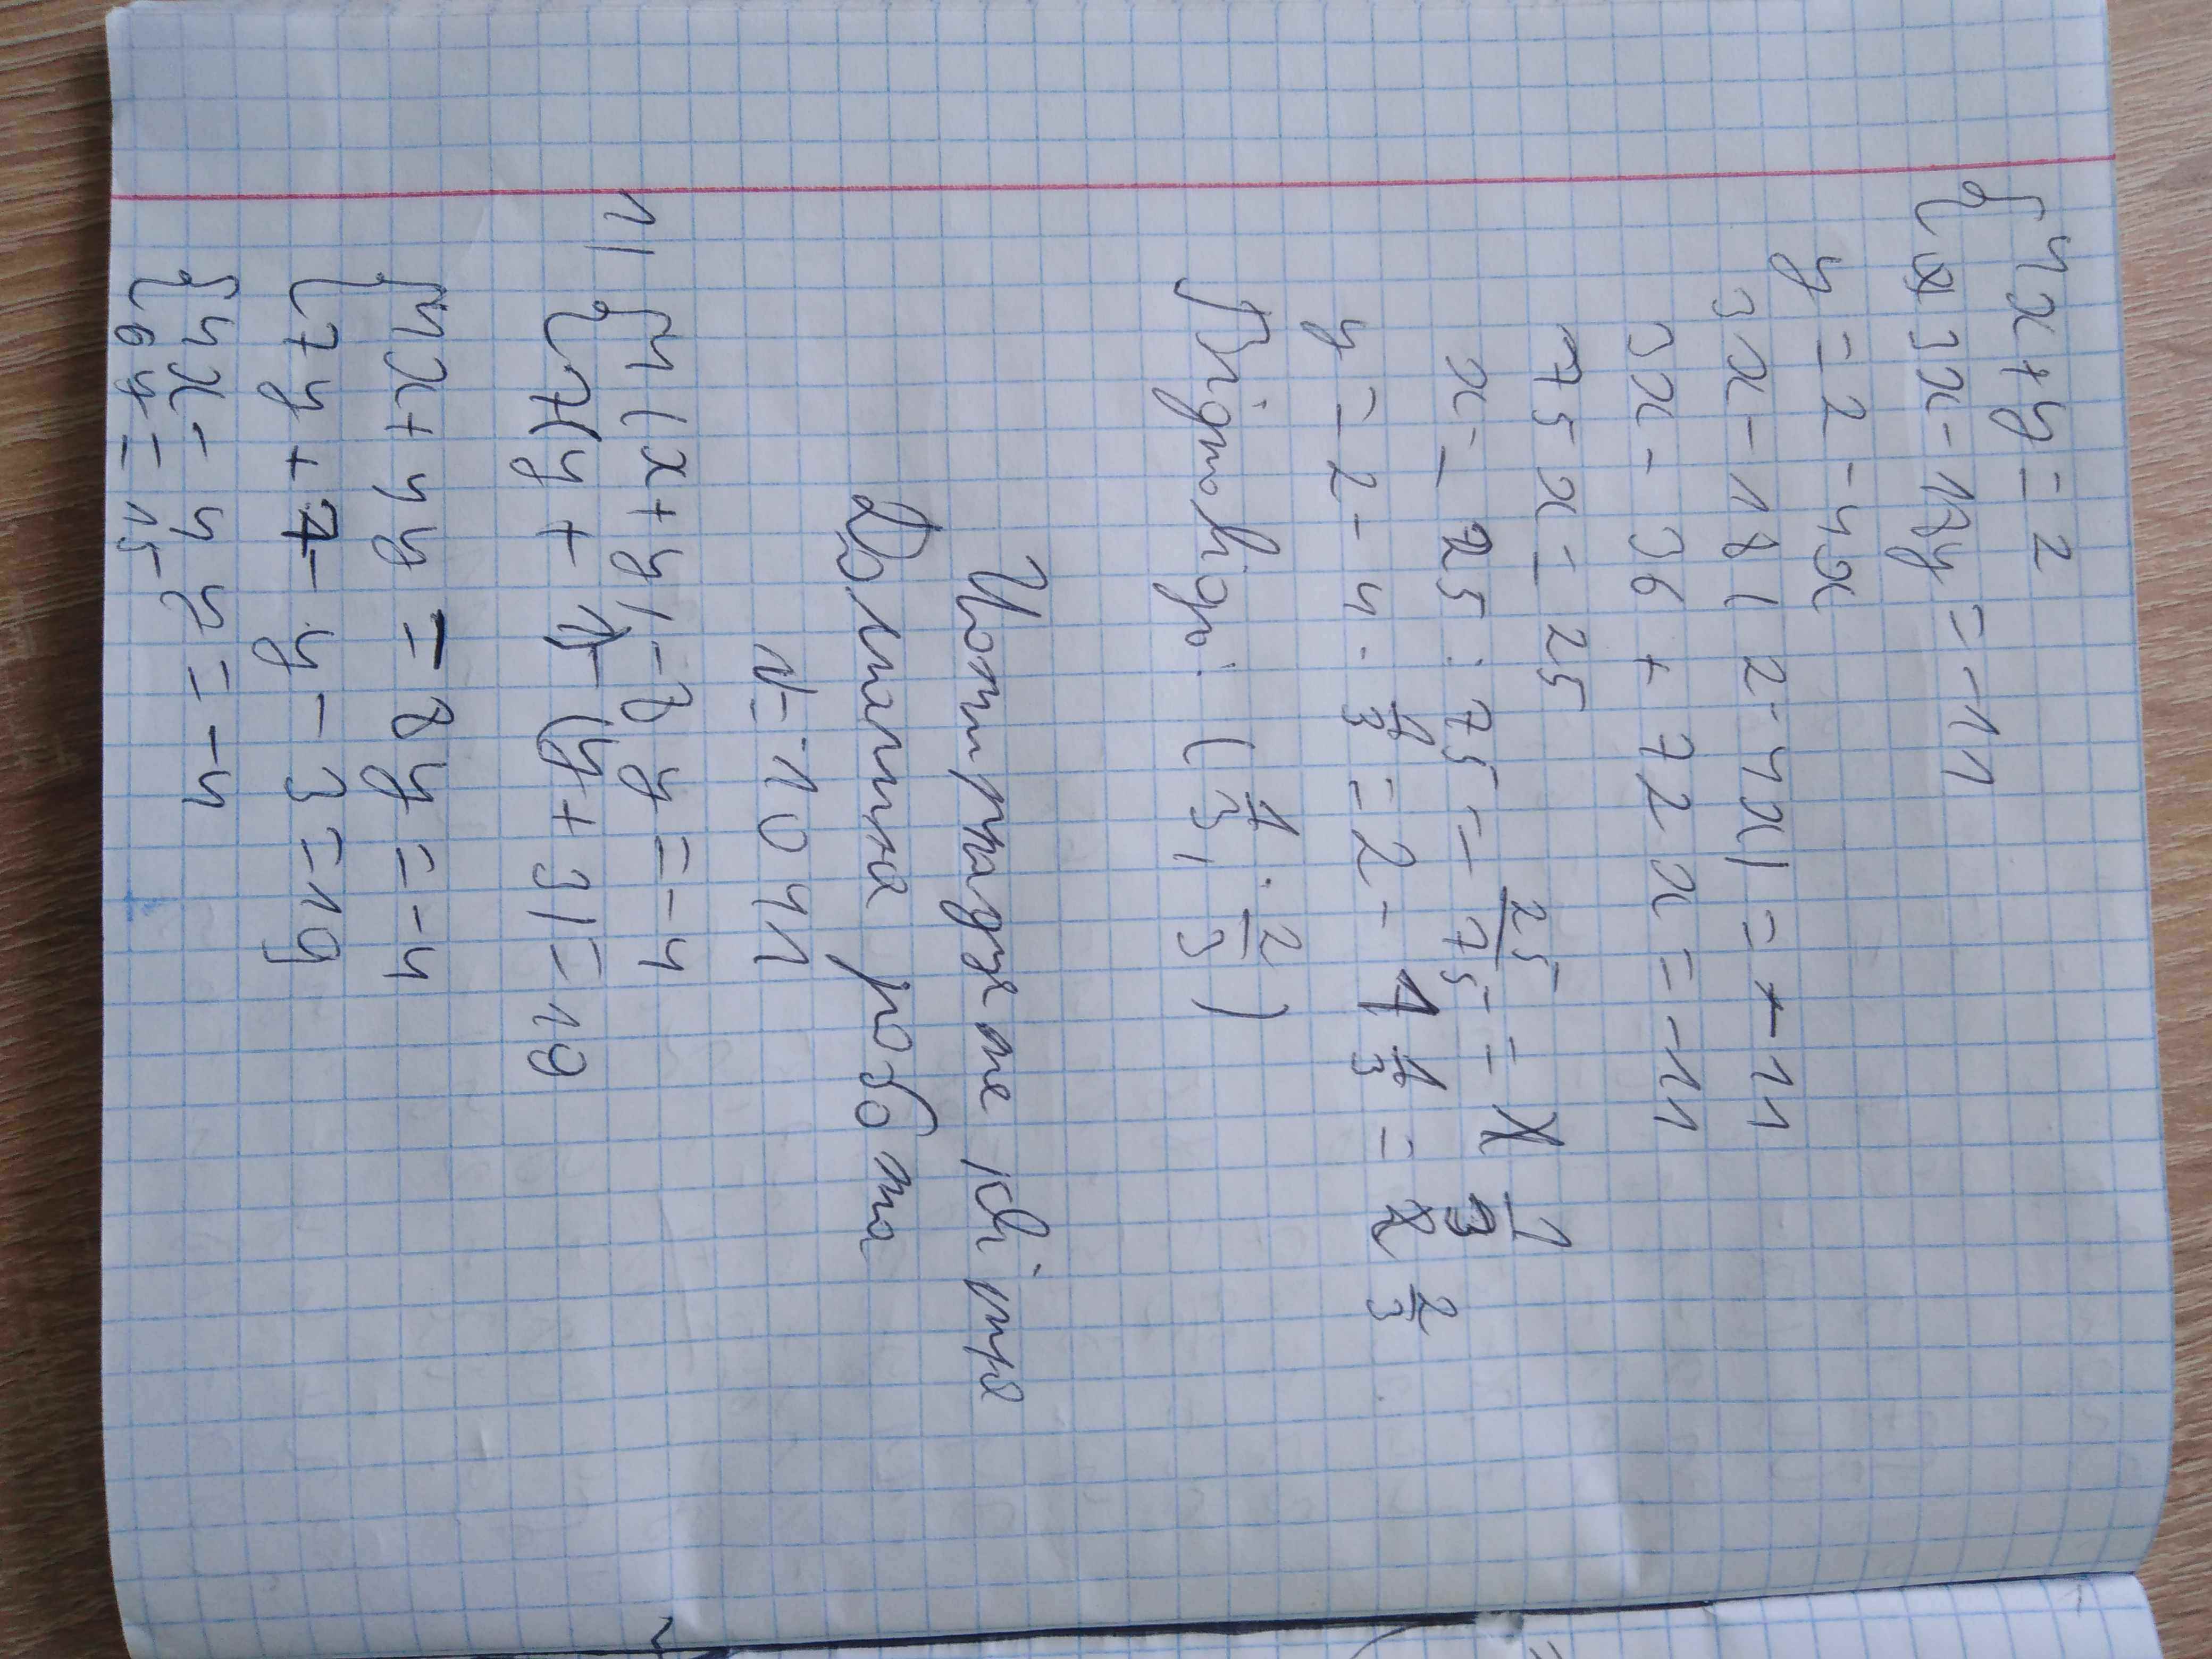 {4x+y=2
{3x-18y=-11
y=2-4x
3x-18(2-4x)=-11
3x-36+72x=-11
75x=25
x=25:75=25/75=1/3
y=2-4·1/3=2-1 1/3=2/3
Відповідь: (1/3; 2/3)
Домашня робота
N=1041
1) {4(x+y)-8y=-4
{7(y+1)-(y+3)=19
{4x+4y-8y=-4
{7y+7-y-3=19
{4x-4y=-4
{6y=15